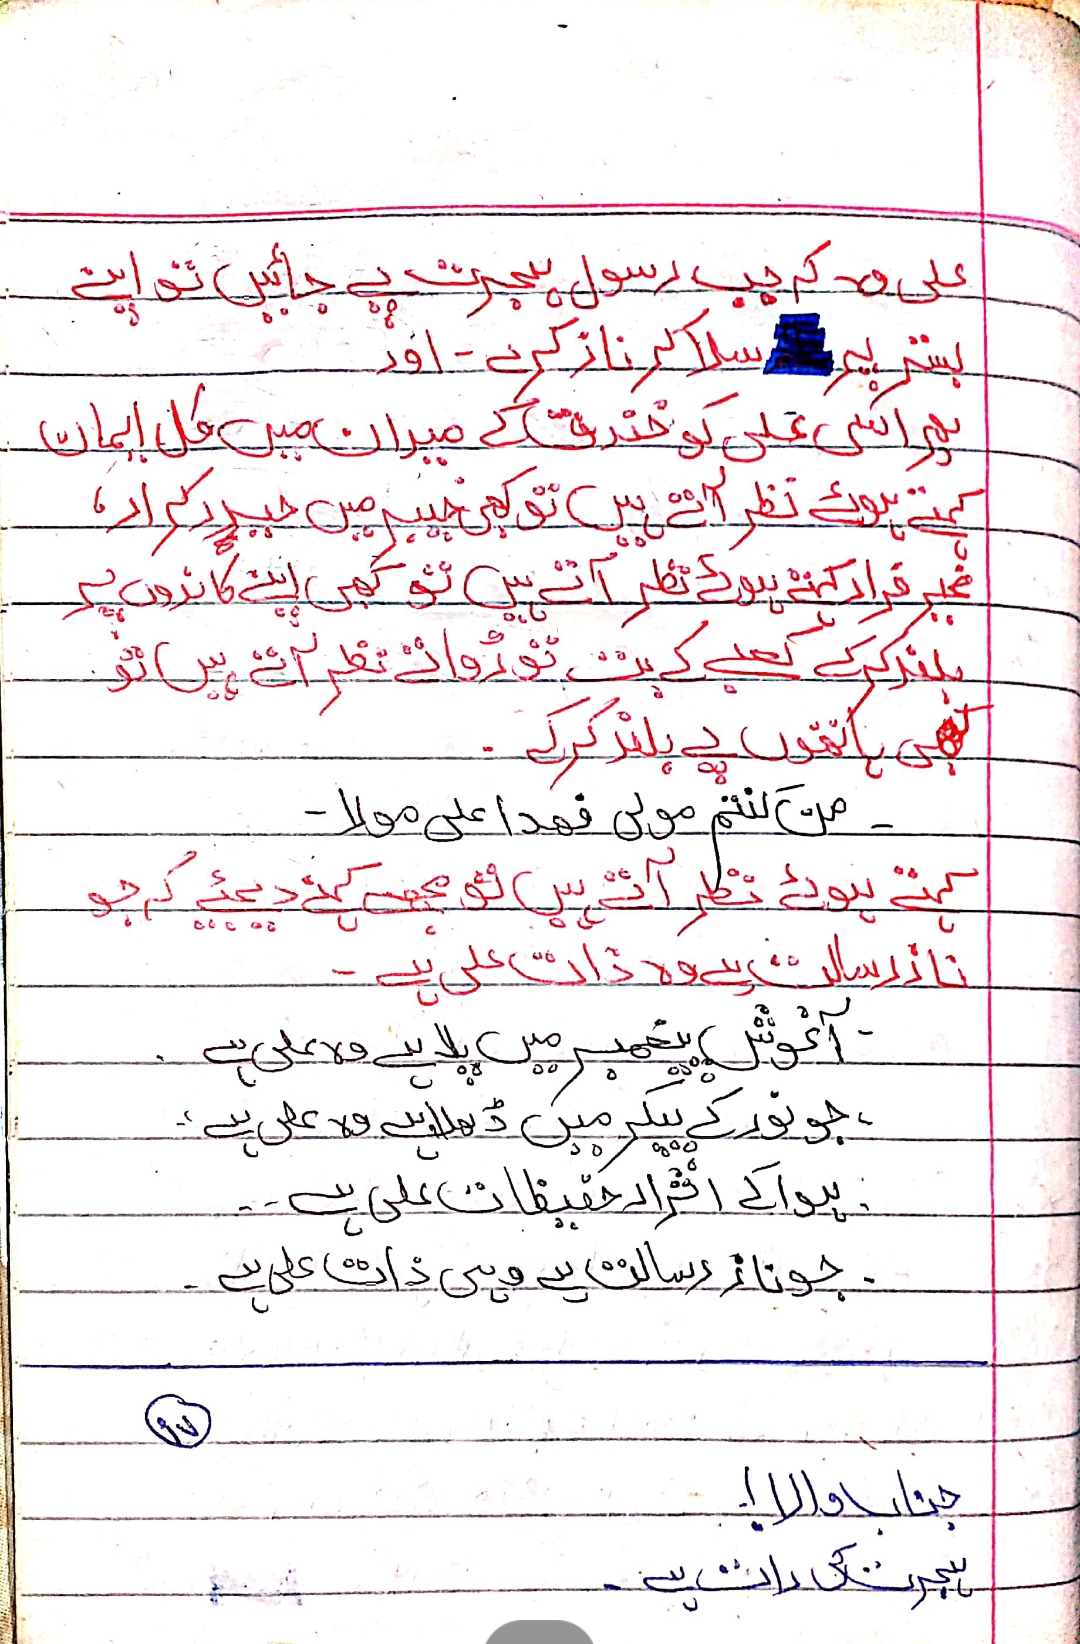 علی وہ کہ جب رسول ہجرت پے جائیں تو اپنے
بستر پر سلا کر ناز کرے - اور
پھر اسی علی کو خندق کے میدان میں کل ایمان
کہتے ہوئے نظر آتے ہیں تو کبھی خیبر میں حیدر کرار،
غیر فرار کہتے ہوئے نظر آتے ہیں تو کبھی اپنے کاندوں پر
بلند کرکے کعبے کے بت توڑواتے نظر آتے ہیں تو
کبھی ہاتھوں پے بلند کرکے -
- من کنتم مولی فھدا علی مولا -
کہتے ہوئے نظر آتے ہیں تو مجھے کہنے دیجئے کہ جو
ناز رسالت ہے وہ ذات علی ہے -
- آغوش پیغمبر میں پلا ہے وہ علی ہے .
، جو نور کے پیکر میں ڈھلا ہے وہ علی ہے ،.
. ہوا کے علی ہے - - -
. جو ناز رسالت ہے وہی ذات علی ہے -
جناب والا !.
ہجرت کی رات ہے -